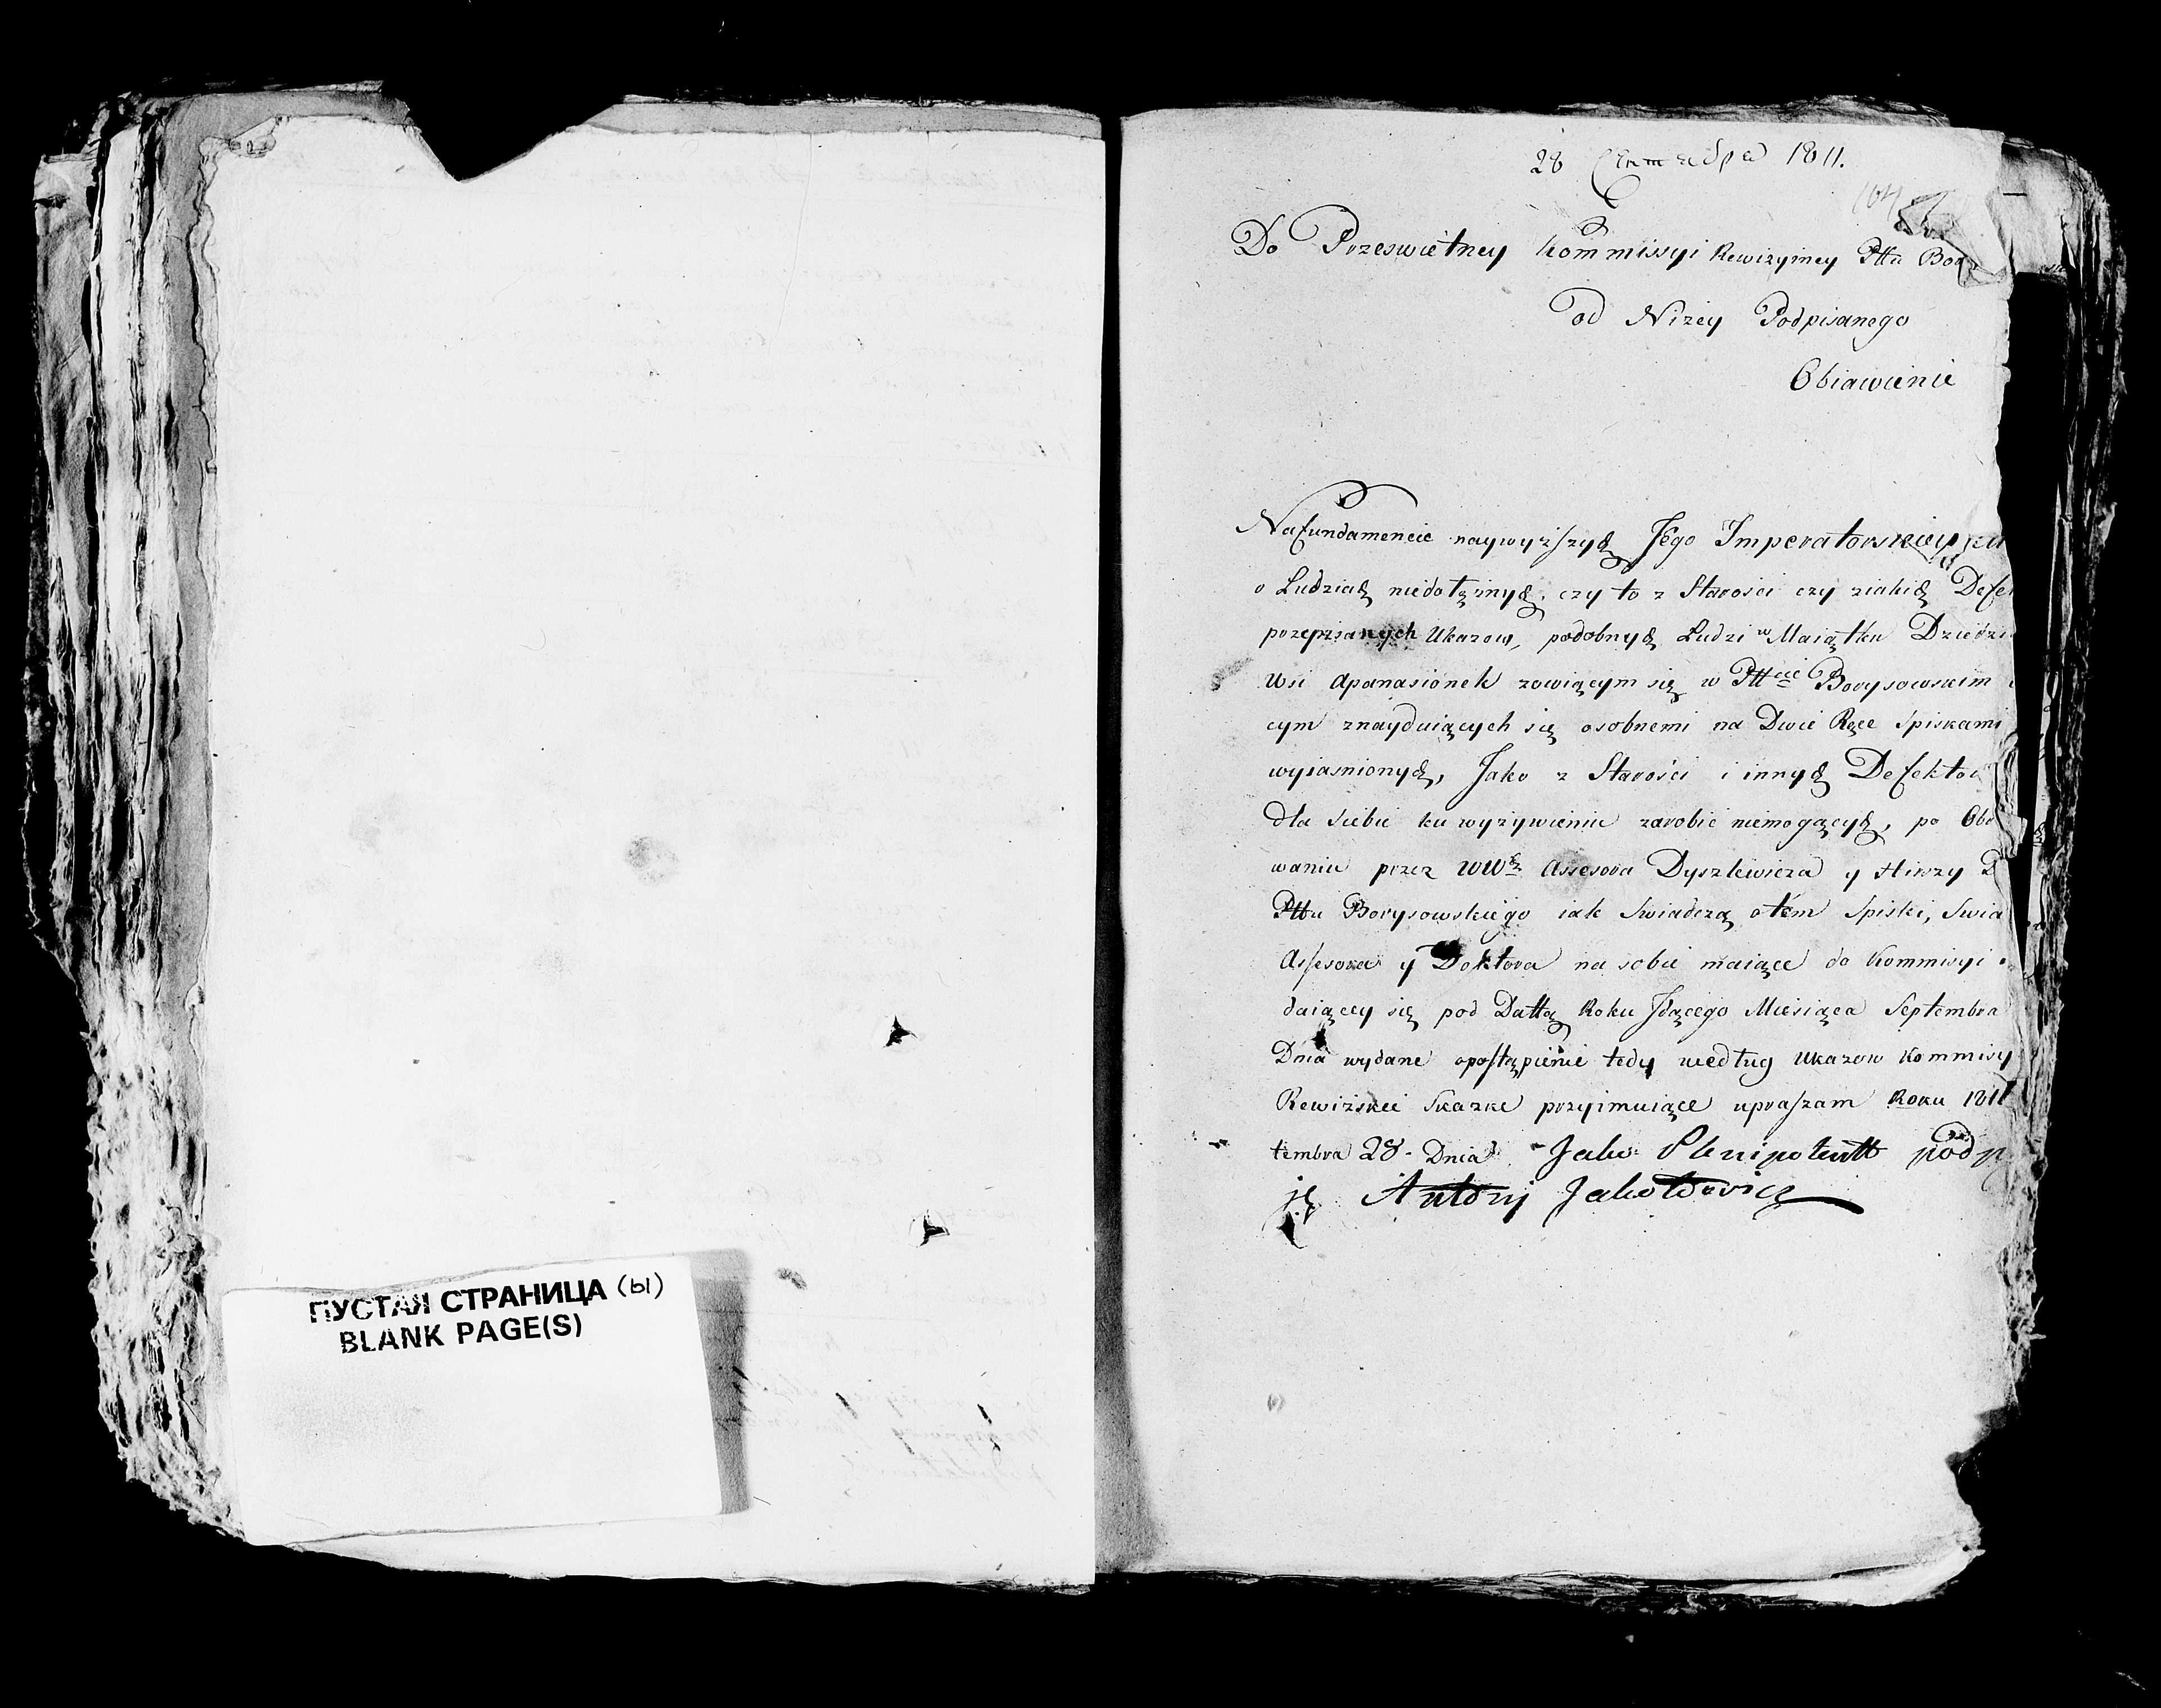 ПУСТАЯ СТРАНИЦА (ы)
BLANK PAGE(S)
28 Сентября 1811.
Do Przeswietney Kommissyi Rewizyiney Pttu Bor
od Nizey Podpisanego
Obiawienie
Na fundamencie naywyzszych Jego Imperatorskiey
o Ludziach niedołężnych, czy to z Starości czy z iakich Defek
przepisanych Ukazow, podobnych Ludzi w Maiątku Dziedzi
Wsi Apanasionek zowiącym się w Pttcie Borysowskim
cym znayduiących się osobnemi na Dwie Ręce Spiskami
wyiasnionych, Jako z Starości i innych Defektow
dla siebie ku wyzywieniu zarobić niemogących, po Obe
waniu przez WWch Assesora Dyszlewicza y Hinzy D
Pttu Borysowskiego iak Swiadczą o tem Spiski, Swia
Assesora y Doktora na sobie maiące do Kommisyi
daiącey się pod Dattą Roku Jdącego Miesiąca Septembra
Dnia wydane opostąpienie tedy według Ukazow Kommisy
Rewizskei Skazke przyimuiące upraszam Roku 1811
tembra 28 - Dnia. Jako Plenipotentt podp
ję Antoni Jakołdowicz